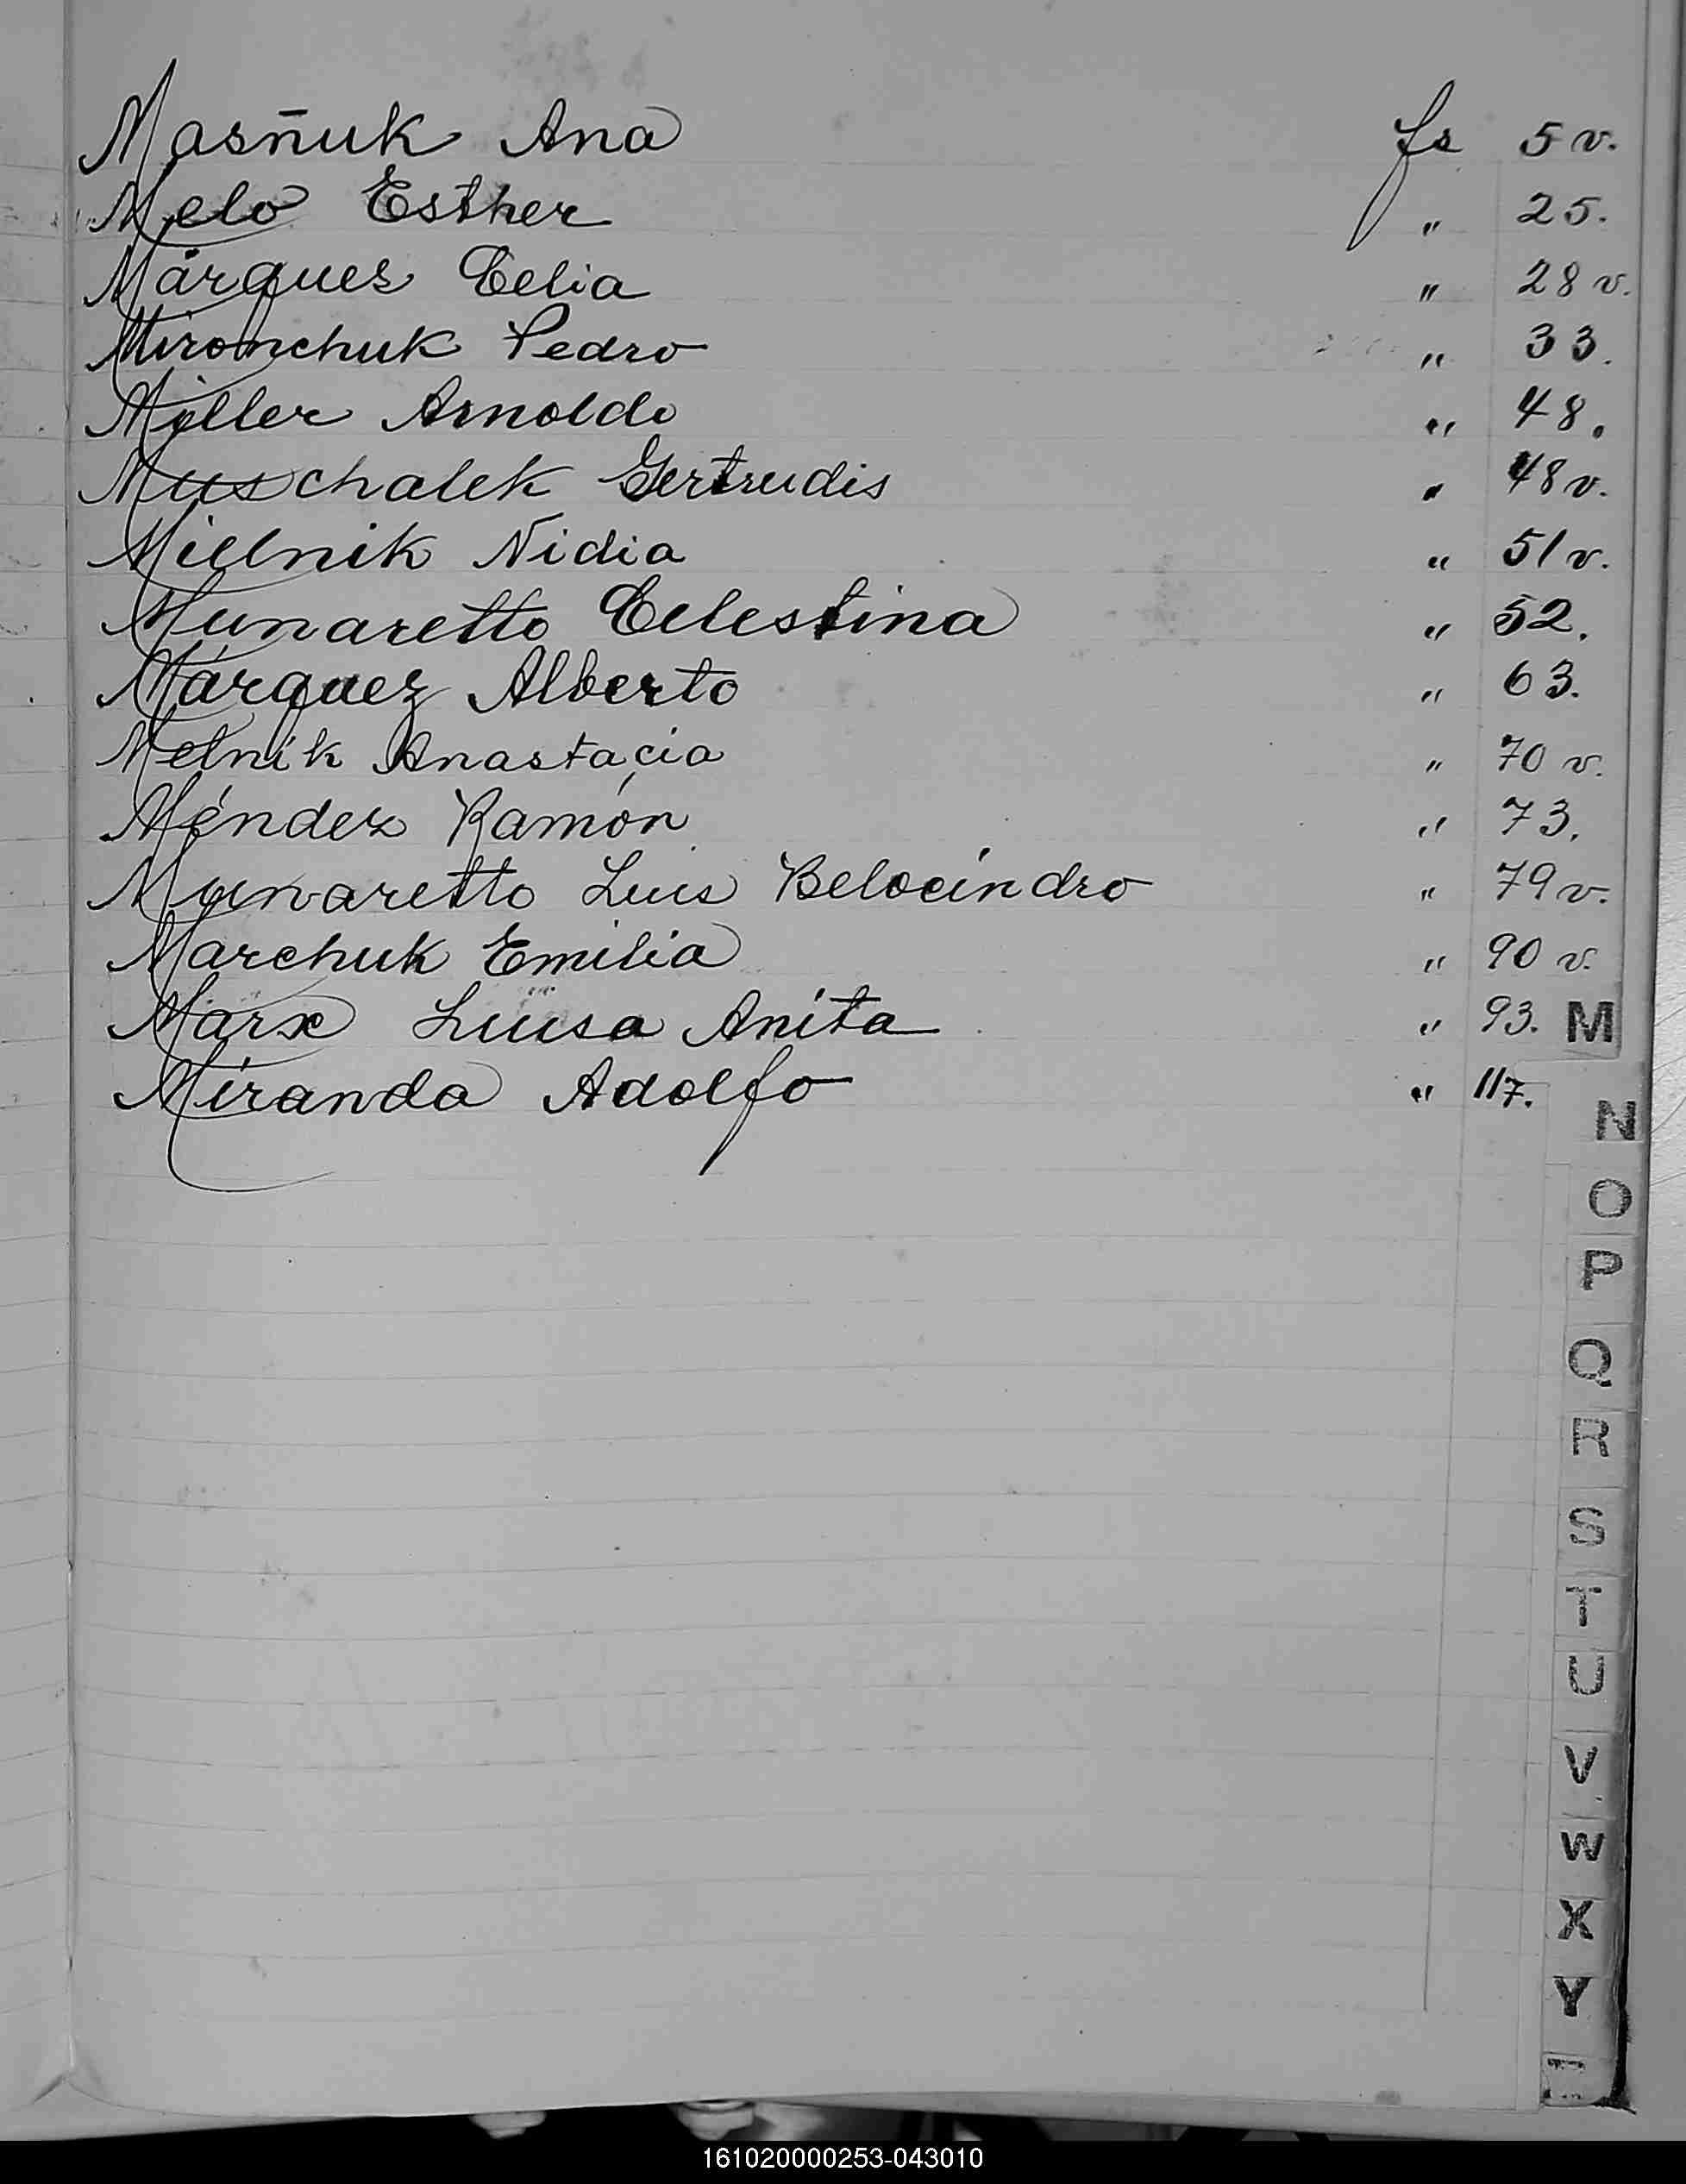 Masñuk Ana fs 5 v.
Melo Esther " 25.
Márques Celia " 28 v.
Mironchuk Pedro " 33.
Myller Arnoldo " 48.
Muschalek Gertrudis " 48 v.
Mielnik Nidia " 51 v.
Munaretto Celestina " 52.
Márquez Alberto " 63.
Melnik Anastacia " 70 v.
Méndez Ramón " 73.
Munaretto Luis Belocindro " 79 v.
Marchuk Emilia " 90 v.
Marx Luisa Anita " 93.
Miranda Adolfo " 117.
M
N
O
P
Q
R
S
T
U
V
W
X
Y
161020000253-043010